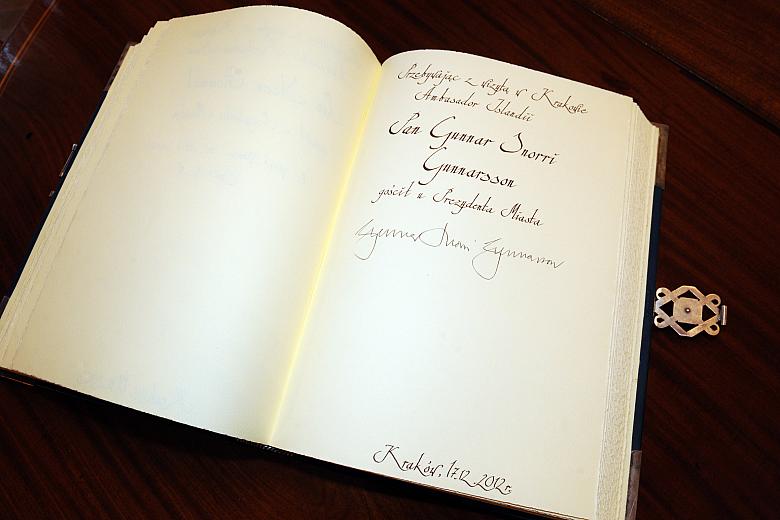 Przebywając z wizytą w Krakowie
Ambasador Islandii
Pan Gunnar Snorri
Gunnarsson
gościł u Prezydenta Miasta
Gunnar Snorri Gunnarsson
Kraków, 17.12.2012r.